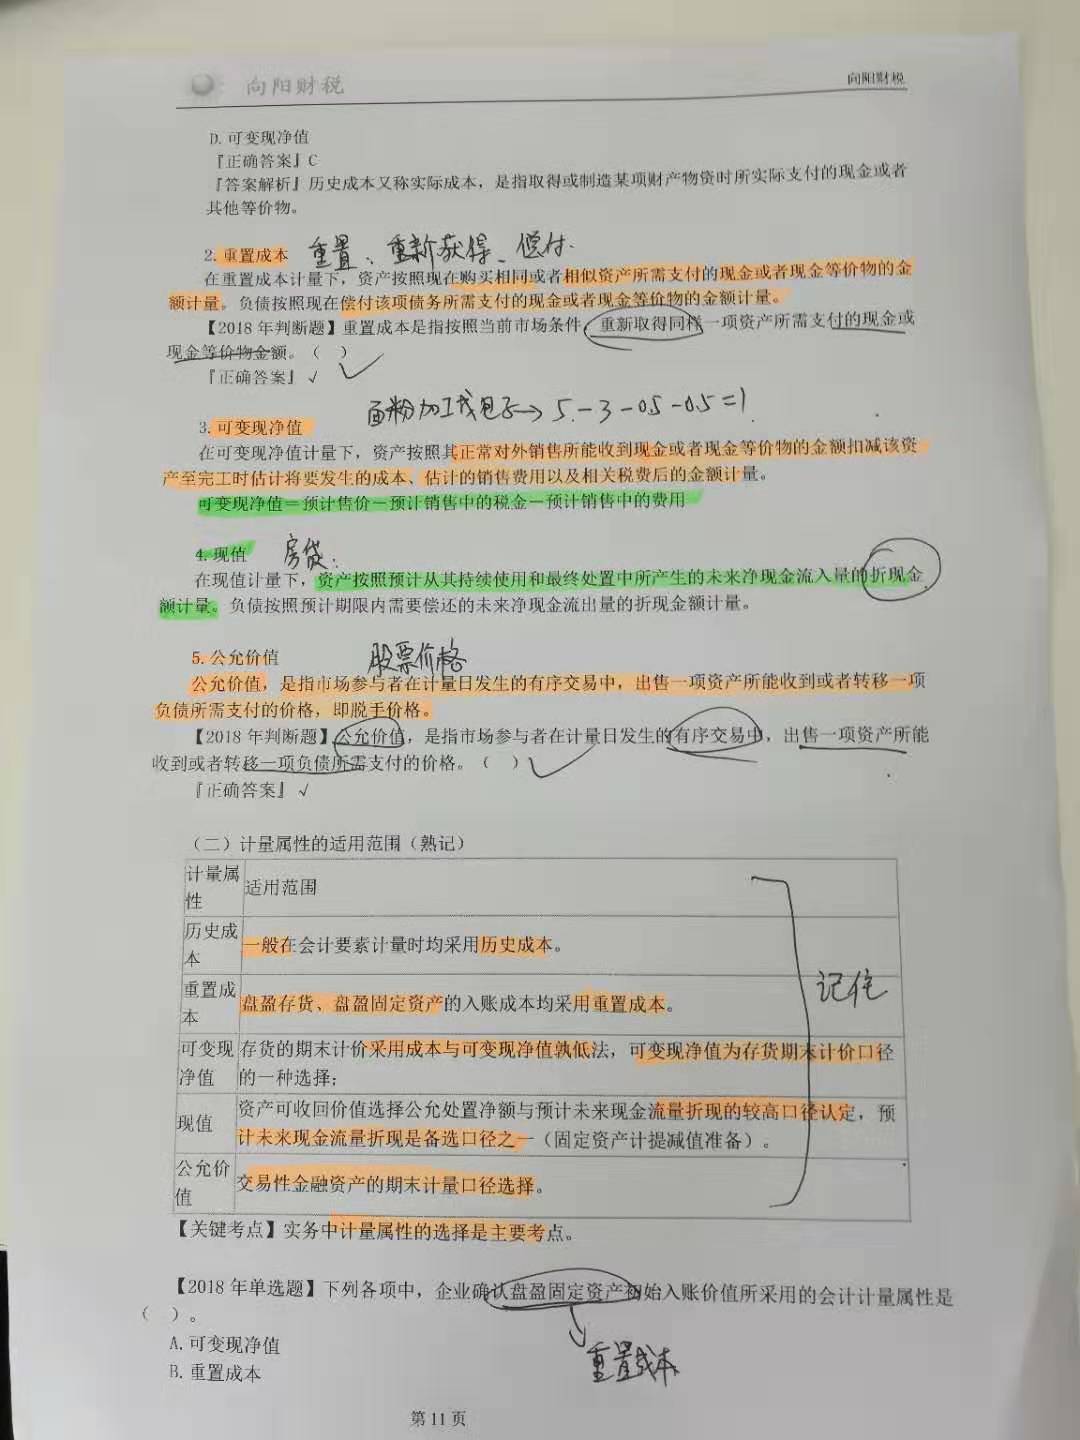 向阳财税 向阳财税
D. 可变现净值
『正确答案』C
『答案解析』历史成本又称实际成本，是指取得或制造某项财产物资时所实际支付的现金或者
其他等价物。
2. 重置成本 重置、重新获得、偿付.
在重置成本计量下，资产按照现在购买相同或者相似资产所需支付的现金或者现金等价物的金
额计量。负债按照现在偿付该项债务所需支付的现金或者现金等价物的金额计量。
【2018 年判断题】重置成本是指按照当前市场条件，重新取得同样一项资产所需支付的现金或
现金等价物金额。（ ）
『正确答案』√
面粉加工成包子→ 5-3-0.5-0.5=1
3. 可变现净值
在可变现净值计量下，资产按照其正常对外销售所能收到现金或者现金等价物的金额扣减该资
产至完工时估计将要发生的成本、估计的销售费用以及相关税费后的金额计量。
可变现净值＝预计售价－预计销售中的税金－预计销售中的费用
4. 现值 房贷.
在现值计量下，资产按照预计从其持续使用和最终处置中所产生的未来净现金流入量的折现金
额计量。负债按照预计期限内需要偿还的未来净现金流出量的折现金额计量。
5. 公允价值 股票价格
公允价值，是指市场参与者在计量日发生的有序交易中，出售一项资产所能收到或者转移一项
负债所需支付的价格，即脱手价格。
【2018 年判断题】公允价值，是指市场参与者在计量日发生的有序交易中，出售一项资产所能
收到或者转移一项负债所需支付的价格。（ ）
『正确答案』√
（二）计量属性的适用范围（熟记）
计量属 适用范围
性
历史成 一般在会计要素计量时均采用历史成本。
本
重置成 盘盈存货、盘盈固定资产的入账成本均采用重置成本。
本
记住
可变现 存货的期末计价采用成本与可变现净值孰低法，可变现净值为存货期末计价口径
净值 的一种选择；
现值 资产可收回价值选择公允处置净额与预计未来现金流量折现的较高口径认定，预
计未来现金流量折现是备选口径之一（固定资产计提减值准备）。
公允价 交易性金融资产的期末计量口径选择。
值
【关键考点】实务中计量属性的选择是主要考点。
【2018 年单选题】下列各项中，企业确认盘盈固定资产初始入账价值所采用的会计计量属性是
（ ）。
A. 可变现净值
重置成本
B. 重置成本
第 11 页